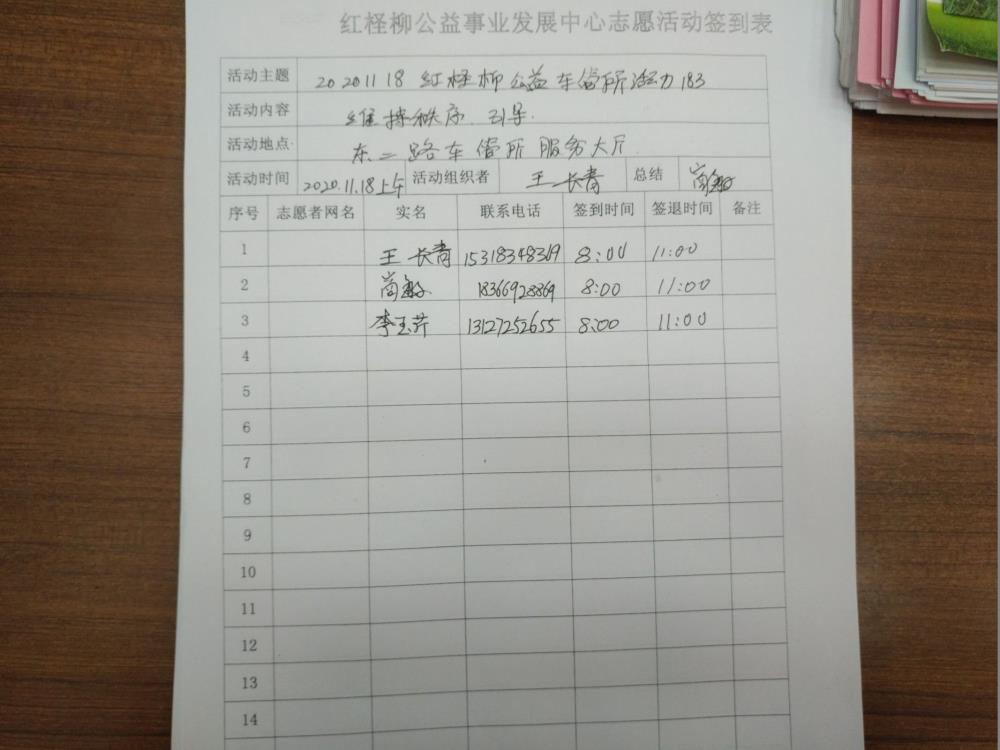 红柽柳公益事业发展中心志愿活动签到表
活动主题 20201118 红柽柳公益车管所活力183
活动内容 维持秩序、引导.
活动地点 东二路车管所服务大厅
活动时间 2020.11.18上午 活动组织者 王长青 总结
序号 志愿者网名 实名 联系电话 签到时间 签退时间 备注
1 王长青 15318348369 8:00 11:00
2 18366928869 8:00 11:00
3 李玉芹 13127252655 8:00 11:00
4
5
6
7
8
9
10
11
12
13
14